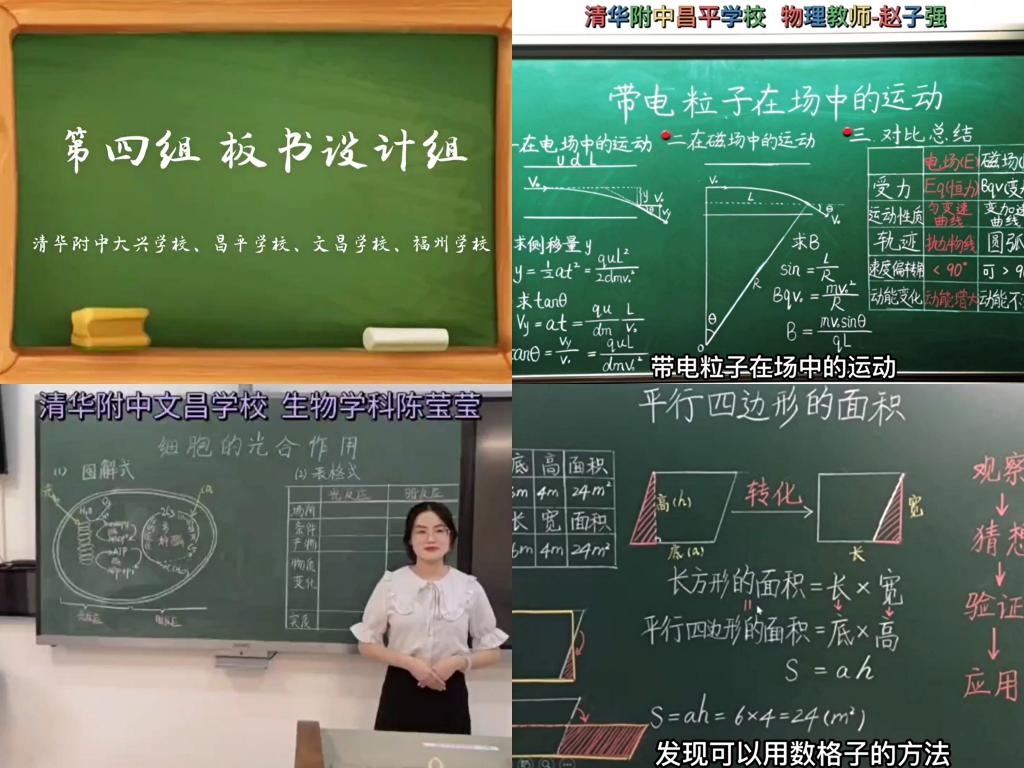 第四组 板书设计组
清华附中大兴学校、昌平学校、文昌学校、福州学校
清华附中昌平学校 物理教师-赵子强
带电粒子在场中的运动
一在电场中的运动
二在磁场中的运动
三 对比总结
U d L
V₀
y
θ
V₀
L
R
θ
O
求侧移量y
y=½at²=quL²/2dmv₀²
求tanθ
Vy=at=qu/dm L/V₀
tanθ=Vy/V₀=quL/dmv₀²
求B
sin=L/R
BqV₀=mv₀²/R
B=mv₀sinθ/qL
电场(E) 磁场
受力 Eq(恒力) Bqv(变
运动性质 匀变速曲线 变加速曲线
轨迹 抛物线 圆弧
速度偏转角 <90° 可>9
动能变化 动能增大 动能不
带电粒子在场中的运动
清华附中文昌学校 生物学科陈莹莹
细胞的光合作用
(1) 图解式
(2) 表格式
光反应 暗反应
场所
条件
产物
物质变化
实质
光
H₂O
光反应
暗反应
平行四边形的面积
底 高 面积
6m 4m 24m²
长 宽 面积
6m 4m 24m²
高(h)
底(a)
转化
宽
长
长方形的面积=长×宽
平行四边形的面积=底×高
S=ah
S=ah=6×4=24(m²)
观察
猜想
验证
应用
发现可以用数格子的方法